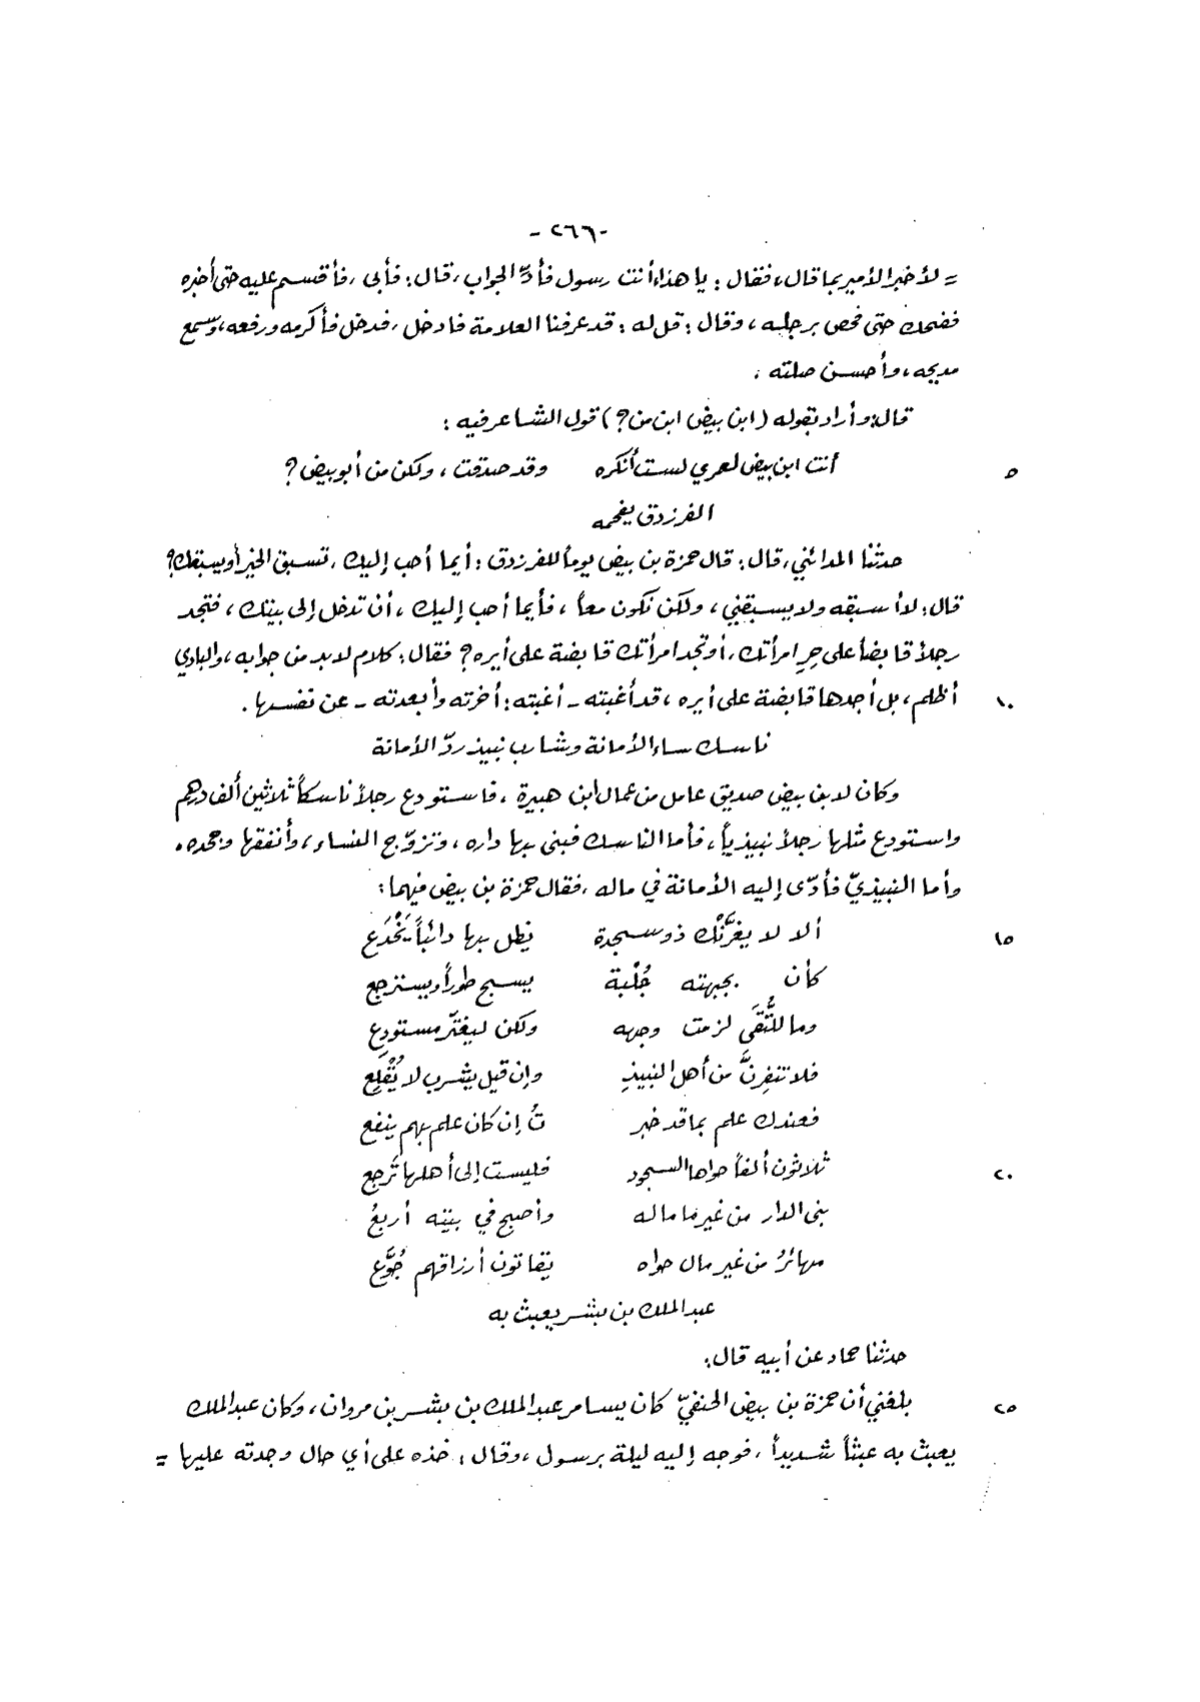 -٢٦٦-
= لأخبر الأمير بما قال، فقال: يا هذا، أنت رسول فأدّ الجواب، قال: فأبى، فأقسم عليه حتى أخبره
فضحك حتى فحص برجليه، وقال: قل له: قد عرفنا العلامة فادخل، فدخل فأكرمه ورفعه، وسمع
مديحه، وأحسن صلته.
قال: وأراد بقوله (ابن بيض ابن من؟) قول الشاعر فيه:
أنت ابن بيض لعمري لست أنكره وقد صدقت، ولكن من أبو بيض؟ ٥
الفرزدق يفحمه
حدثنا المدائني، قال: قال حمزة بن بيض يوماً للفرزدق: أيما أحب إليك، تسبق الخير أو يسبقك؟
قال: لا أسبقه ولا يسبقني، ولكن نكون معاً، فأيما أحب إليك، أن تدخل إلى بيتك، فتجد
رجلاً قابضاً على حِرِ امرأتك، أو تجد امرأتك قابضة على أيره؟ فقال: كلام لابد من جوابه، والبادي
أظلم، بل أجدها قابضة على أيره، قد أغبته - أغبته: أخرته وأبعدته - عن نفسها. ١٠
ناسك ساء الأمانة وشارب نبيذ ردّ الأمانة
وكان لابن بيض صديق عامل من عمال ابن هبيرة، فاستودع رجلاً ناسكاً ثلاثين ألف درهم
واستودع مثلها رجلاً نبيذياً، فأما الناسك فبنى بها داره، وتزوّج النساء، وأنفقها وجحده.
وأما النبيذيّ فأدّى إليه الأمانة في ماله، فقال حمزة بن بيض فيهما:
ألا لا يغرّنْك ذو سجدة يظل بها دائباً يَخْدَع ١٥
كأن بجبهته جُلْبة يسبح طوراً ويسترجع
وما للتُّقَى لزمت وجهه ولكن ليغترّ مستودِع
فلا تنفِرنَّ من أهل النبيذِ وإن قيل يشرب لا يُقْلِع
فعندك علم بما قد خبر تُ إن كان علم بهم ينفع
ثلاثون ألفاً حواها السجود فليست إلى أهلها تَرجع ٢٠
بنى الدار من غير ما ماله وأصبح في بيته أربعُ
مهائرُ من غير مال حواه يقاتون أرزاقهم جُوَّع
عبد الملك بن بشر يعبث به
حدثنا حماد عن أبيه قال:
بلغني أن حمزة بن بيض الحنفيّ كان يسامر عبد الملك بن بشر بن مروان، وكان عبد الملك ٢٥
يعبث به عبثاً شديداً، فوجه إليه ليلة برسول، وقال: خذه على أي حال وجدته عليها =